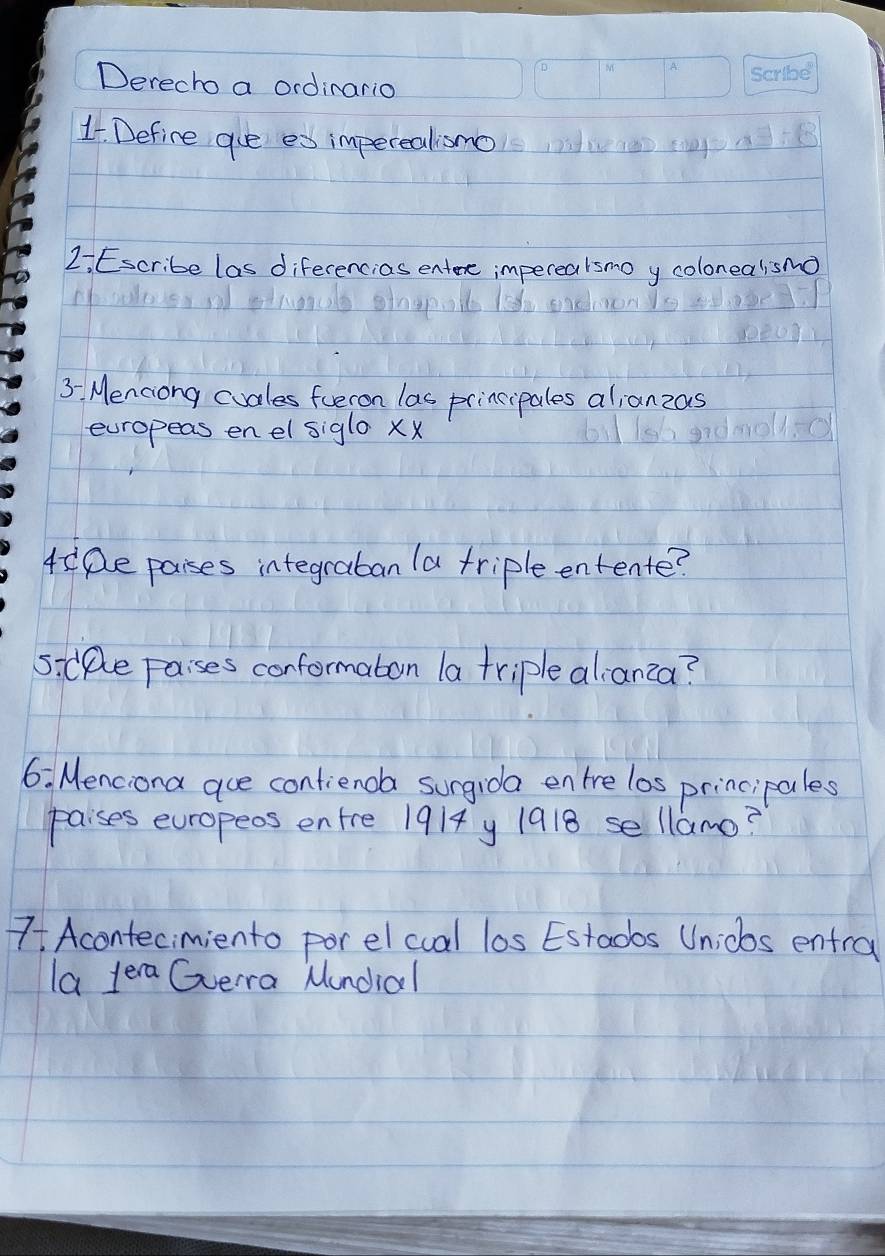 Derecho a ordinario
D M A
Scribe
1-. Define que es imperealismo
2-. Escribe las diferencias entre imperealismo y colonealismo
3-. Menciong cuales fueron las principales alianzas
europeas en el siglo XX
4-¿Que paises integraban la triple entente?
5-.¿Que paises conformaban la triple alianza?
6-. Menciona que contienda surgida entre los principales
paises europeos entre 1914 y 1918 se llamo?
7-. Acontecimiento por el cual los Estados Unidos entra
la 1era Guerra Mundial